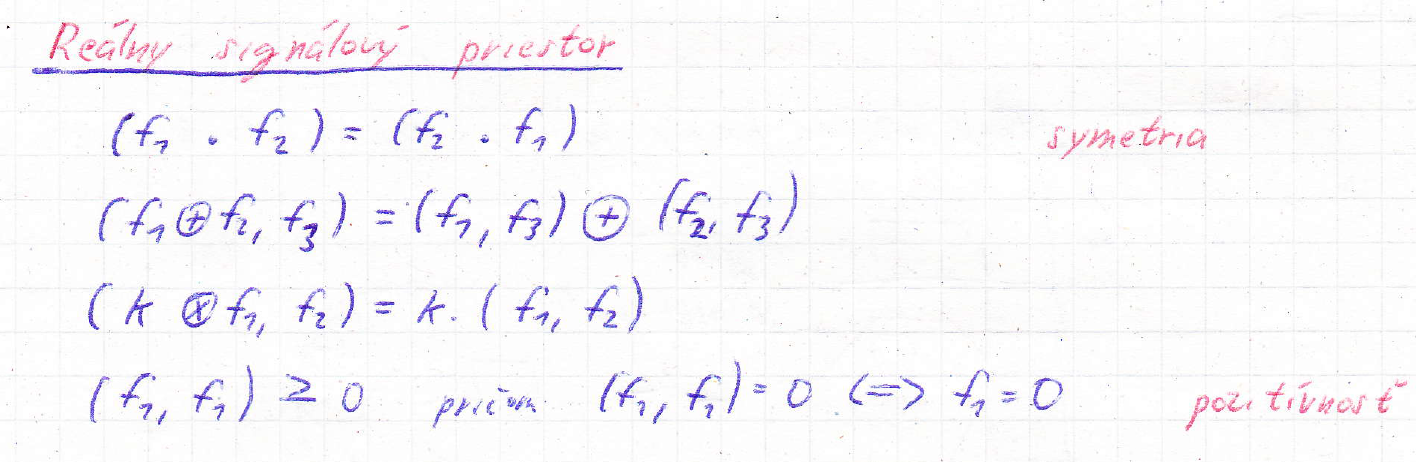 Reálny signálový priestor
(f₁ . f₂) = (f₂ . f₁) symetria
(f₁ ⊕ f₂, f₃) = (f₁, f₃) ⊕ (f₂, f₃)
(k ⊗ f₁, f₂) = k. (f₁, f₂)
(f₁, f₁) ≥ 0 pričom (f₁, f₁) = 0 <=> f₁ = 0 pozitívnosť